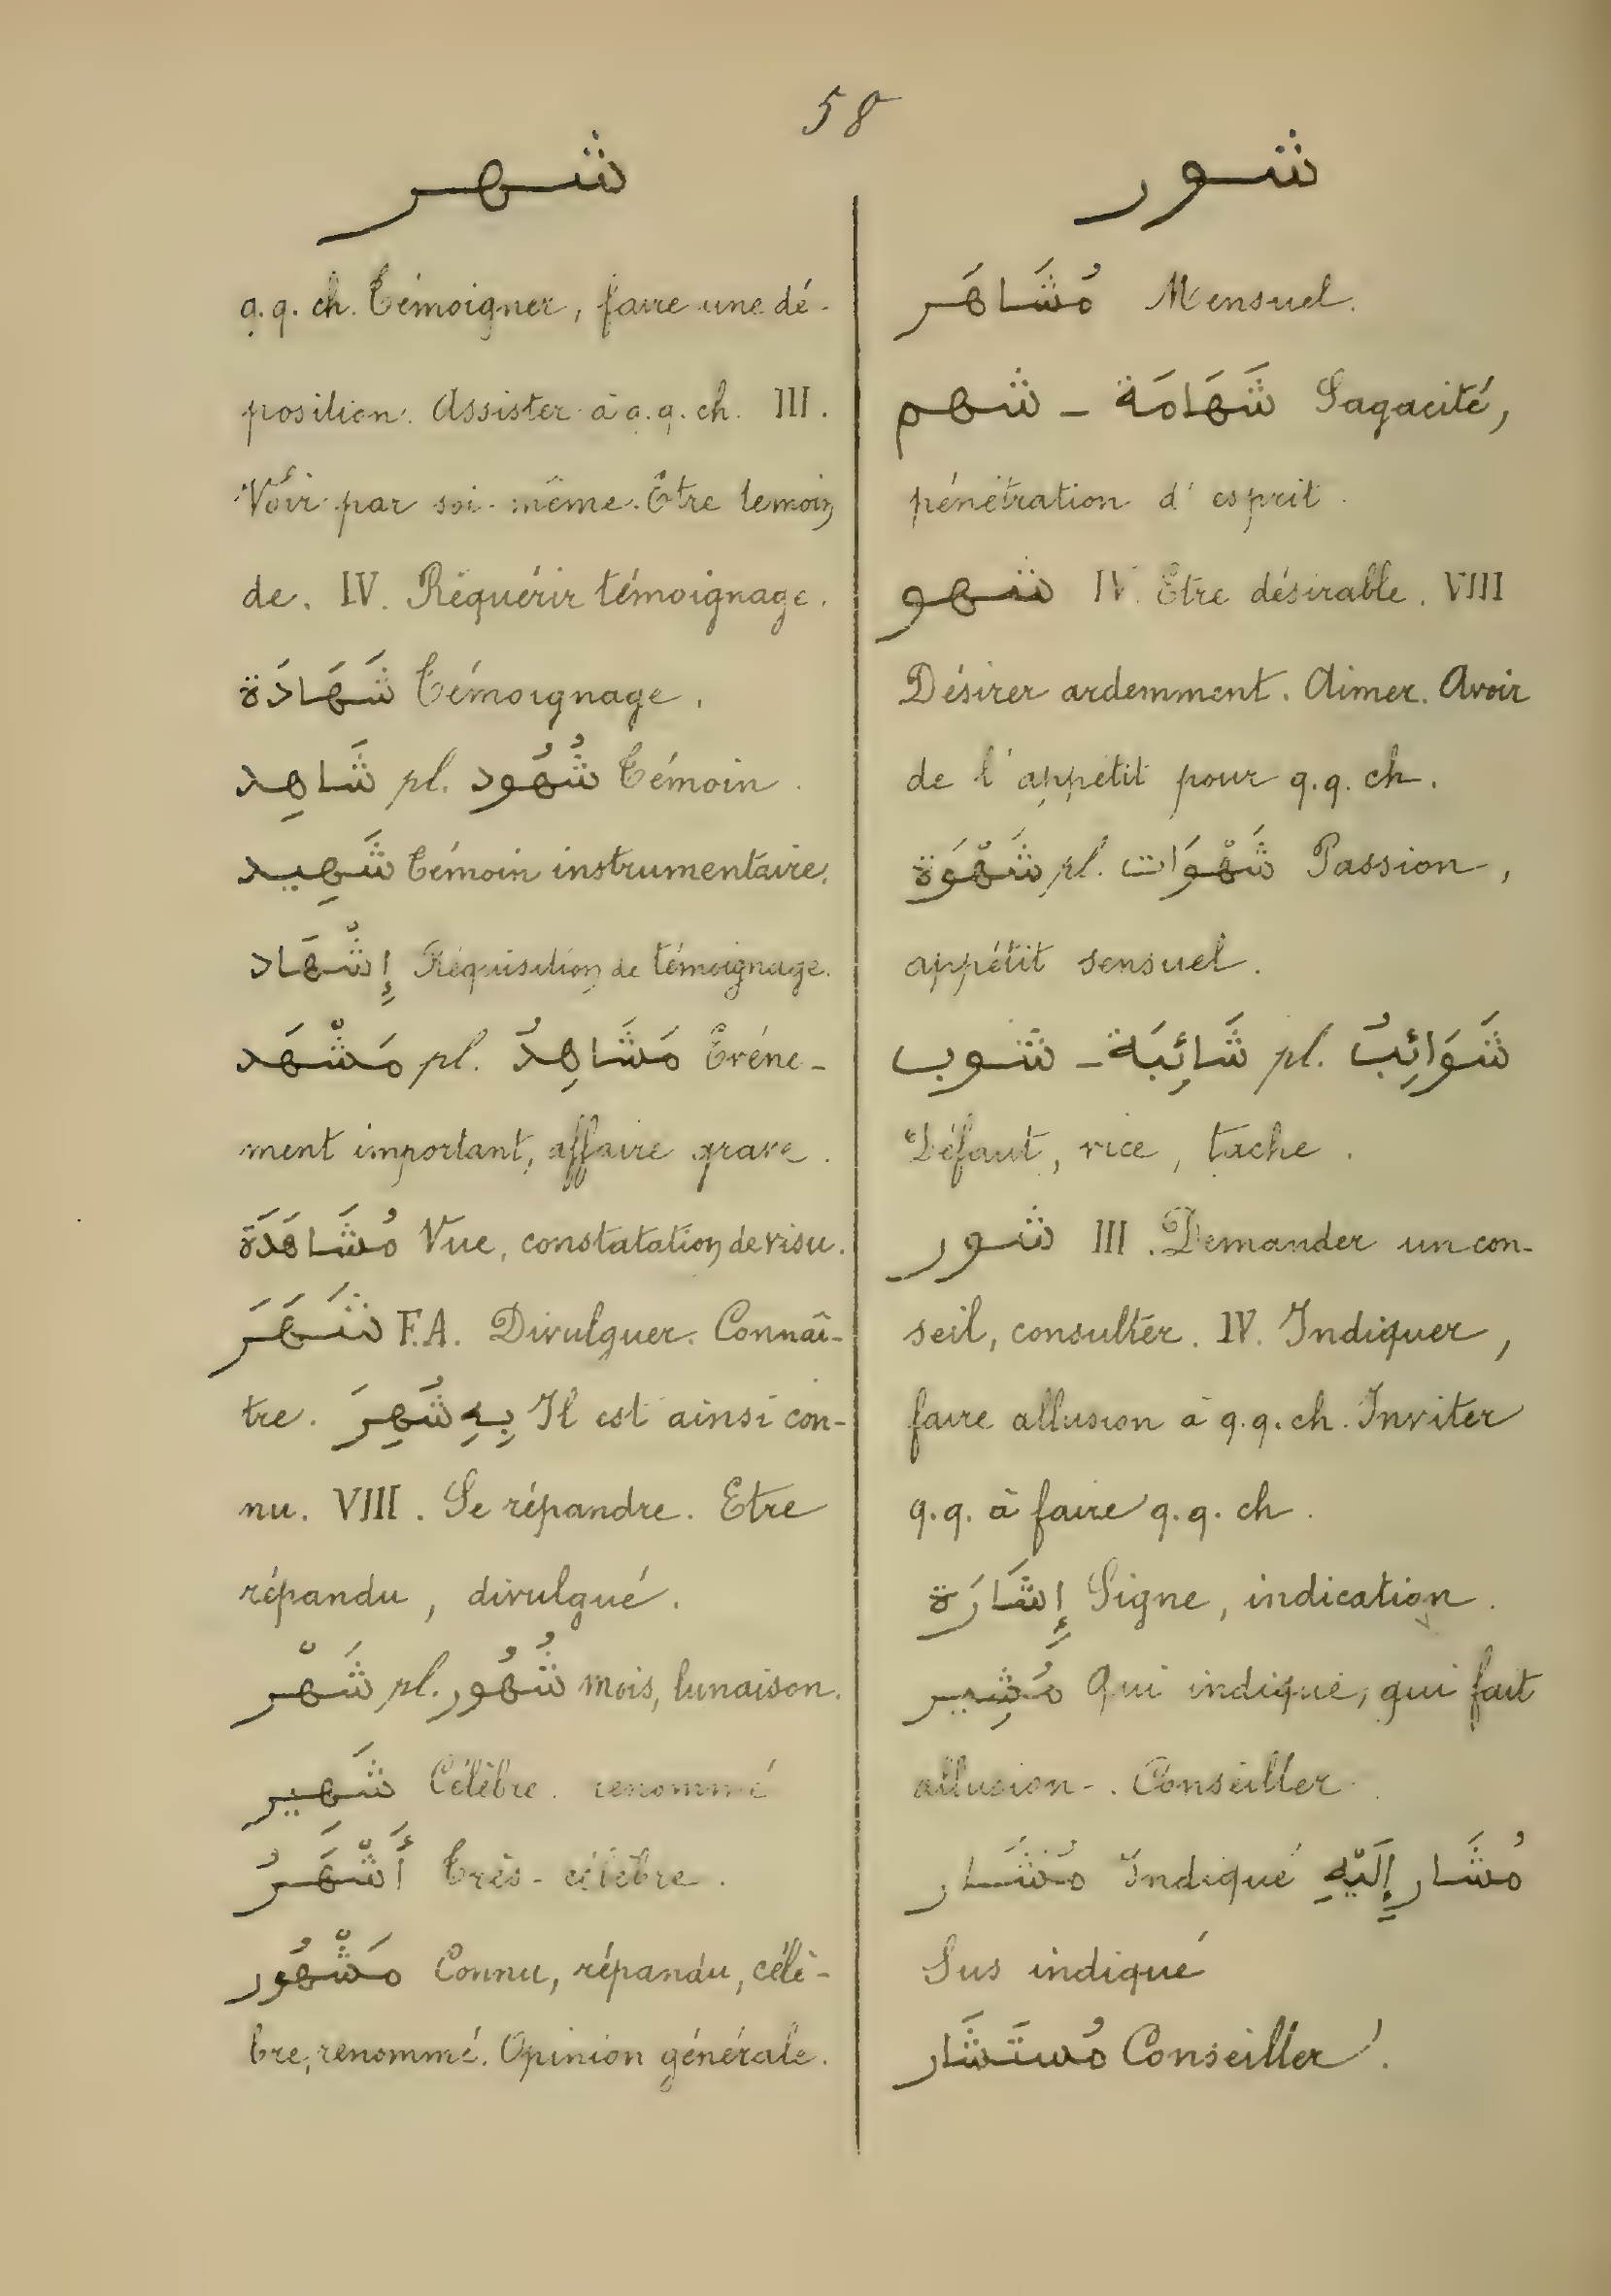 58
شهر
q.q. ch. Témoigner, faire une dé-
position. Assister à q.q. ch. III.
Voir par soi-même. Être temoin
de. IV. Réquérir témoignage.
شَهَادَة Témoignage.
شَاهِد pl. شُهُود Témoin.
شَهِيد Témoin instrumentaire.
إِشْهَاد Réquisition de témoignage.
مَشْهَد pl. مَشَاهِدُ Evéne-
ment important, affaire grave.
مُشَاهَدَة Vue, constatation de visu.
شَهَرَ F.A. Divulguer. Connaî-
tre. بِهِ شُهِرَ Il est ainsi con-
nu. VIII. Se répandre. Etre
répandu, divulgué.
شَهْر pl. شُهُور mois, lunaison.
شَهِير Célèbre. renommé
أَشْهَرُ Très-célèbre.
مَشْهُور Connu, répandu, célè-
bre, renommé. Opinion générale.
شور
مُشَاهَر Mensuel.
شهم - شَهَامَة Sagacité,
pénétration d'esprit.
شهو IV. Etre désirable. VIII
Désirer ardemment. Aimer. Avoir
de l'appétit pour q.q. ch.
شَهْوَة pl. شَهْوَات Passion,
appétit sensuel.
شوب - شَائِبَة pl. شَوَائِبُ
Défaut, vice, tache.
شور III. Demander un con-
seil, consulter. IV. Indiquer,
faire allusion à q.q. ch. Inviter
q.q. à faire q.q. ch.
إِشَارَة Signe, indication.
مُشِير Qui indique, qui fait
allusion-. Conseiller
مُشَار Indiqué مُشَار إِلَيْهِ
Sus indiqué
مُستَشَار Conseiller.